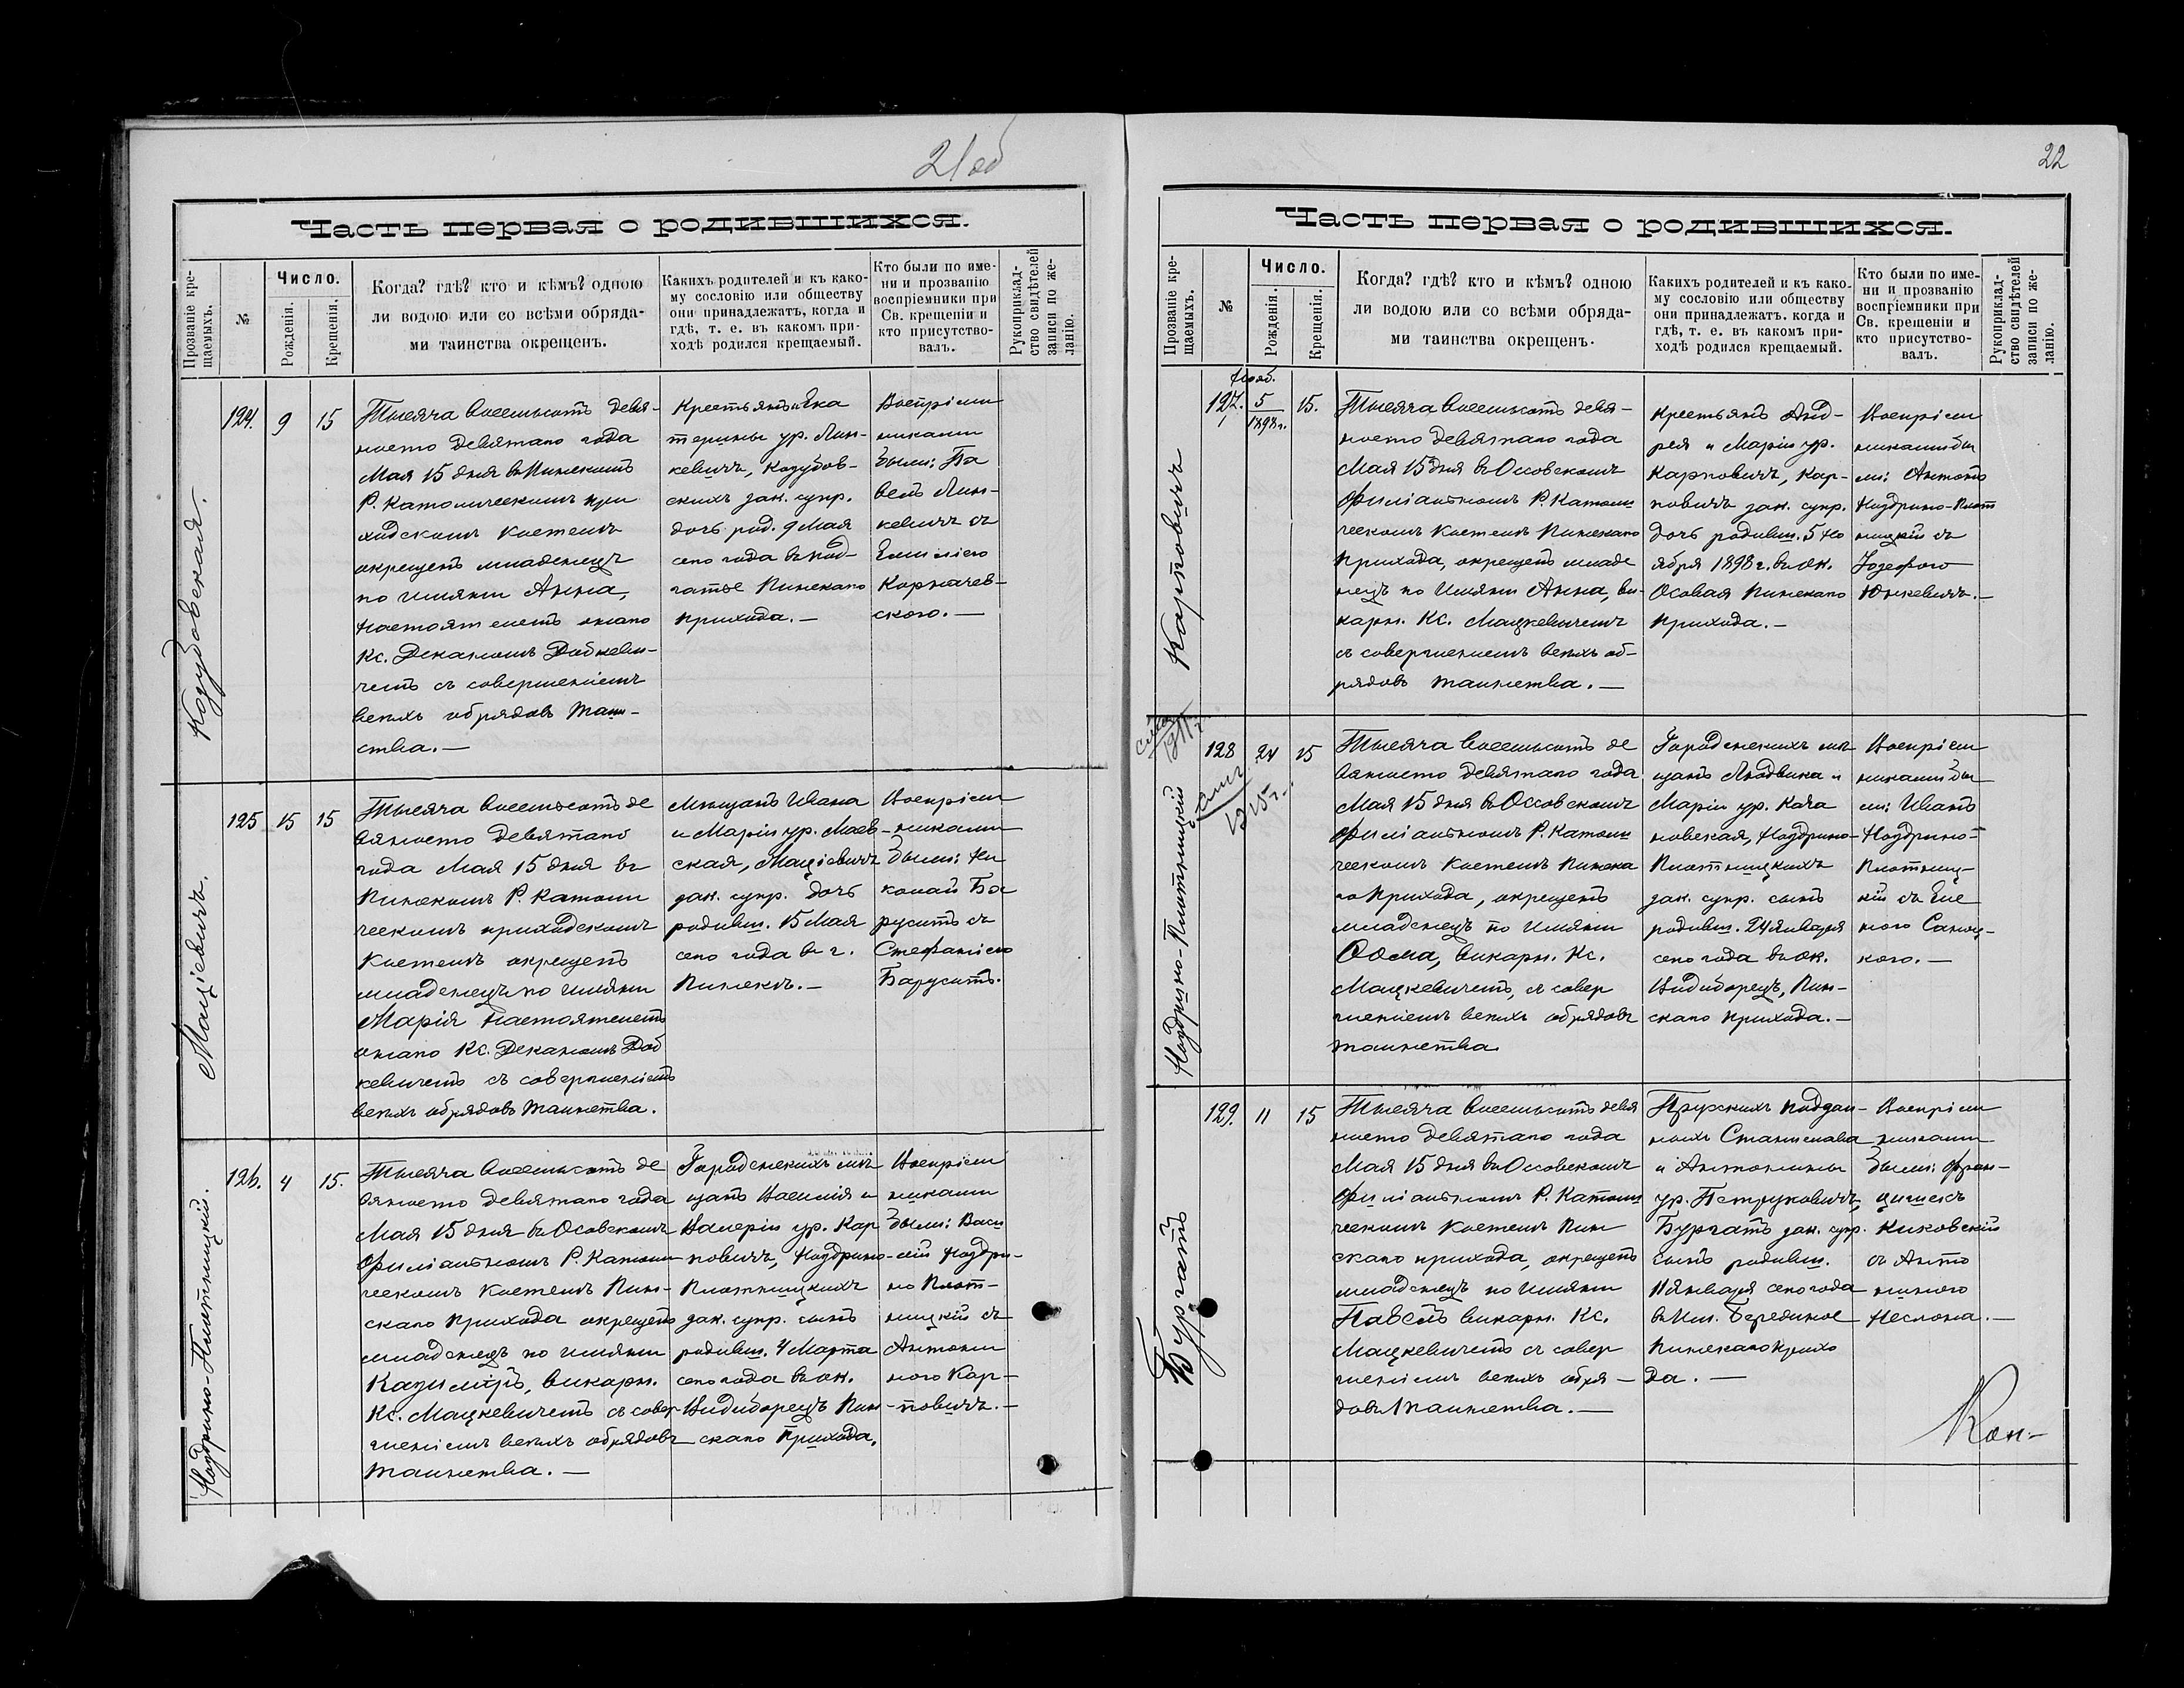 21 об
Часть первая о родившихся.
Прозваніе кре-
щаемыхъ.
№
Число.
Рожденія.
Крещенія.
Когда? гдѣ? кто и кѣмъ? одною
ли водою или со всѣми обряда-
ми таинства окрещенъ.
Какихъ родителей и къ како-
му сословію или обществу
они принадлежатъ, когда и
гдѣ, т. е. въ какомъ при-
ходѣ родился крещаемый.
Кто были по име-
ни и прозванію
воспріемники при
Св. крещеніи и
кто присутство-
валъ.
Рукоприклад-
ство свидѣтелей
записи по же-
ланію.
Козубовская.
124.
9
15
Тысяча восемьсотъ девя-
носто девятаго года
Мая 15 дня въ Пинскомъ
Р. Католическомъ при
ходскомъ костелѣ
окрещенъ младенецъ
по имяни Анна,
настоятелемъ онаго
Кс. Деканомъ Добкеви-
чемъ съ совершеніемъ
всѣхъ обрядовъ таин-
ства.—
Крестьянъ Ека
терины ур. Лин-
кевичъ, Козубов-
скихъ зак. супр.
дочь род. 9 Мая
сего года въ
Пинскаго
прихода.—
Воспріем
никами
были: Па
велъ Лин-
кевичъ съ
Емиліею
Корначев-
ского.—
Маціевичъ.
125
15
15
Тысяча восемьсотъ де
вяносто девятаго
года Мая 15 дня въ
Пинскомъ Р. Католи
ческомъ приходскомъ
костелѣ окрещенъ
младенецъ по имяни
Марія настоятелемъ
онаго Кс. Деканомъ Доб
кевичемъ съ совершеніемъ
всѣхъ обрядовъ таинства.
Мѣщанъ Ивана
и Маріи ур. Маев-
ская, Маціевичъ
зак. супр. дочь
родивш. 15 Мая
сего года въ г.
Пинскѣ.—
Воспріем
никами
были: Ни
колай Ба
русить съ
Стефаніею
Барусить.
Ноздрино-Плотницкій.
126.
4
15.
Тысяча восемьсотъ де
вяносто девятаго года
Мая 15 дня въ Осовскомъ
филіальномъ Р. Католи
ческомъ костелѣ Пин-
скаго прихода окрещенъ
младенецъ по имяни
Казиміръ, викарн.
Кс. Мацкевичемъ съ совер
шеніемъ всѣхъ обрядовъ
таинства.—
Городенскихъ мѣ
щанъ Василія и
Валеріи ур. Кар
повичъ, Ноздрино-
Плотницкихъ
зак. супр. сынъ
родивш. 4 Марта
сего года въ ок.
Видиборецъ Пин
скаго прихода.
Воспріем
никами
были: Васи
лій Ноздри-
но Плот-
ницкій съ
Антони
ного Кар-
повичъ.—
22
Часть первая о родившихся.
Прозваніе кре-
щаемыхъ.
№
Число.
Рожденія.
Крещенія.
Когда? гдѣ? кто и кѣмъ? одною
ли водою или со всѣми обряда-
ми таинства окрещенъ.
Какихъ родителей и къ како-
му сословію или обществу
они принадлежатъ. когда и
гдѣ, т. е. въ какомъ при-
ходѣ родился крещаемый.
Кто были по име-
ни и прозванію
воспріемники при
Св. крещеніи и
кто присутство-
валъ.
Рукоприклад-
ство свидѣтелей
записи по же-
ланію.
Карповичъ
127.
Нояб.
5
1898 г.
15.
Тысяча восемьсотъ девя-
носто девятаго года
Мая 15 дня въ Оссовскомъ
филіальномъ Р. Католи
ческомъ костелѣ Пинскаго
прихода, окрещенъ младе
нецъ по имяни Анна, ви-
карн. Кс. Мацкевичемъ
съ совершеніемъ всѣхъ об-
рядовъ таинства.—
Крестьянъ Анд-
рея и Маріи ур.
Карповичъ, Кар-
повичъ зак. супр.
дочь родивш. 5 Но
ября 1898 г. въ ок.
Осовая Пинскаго
прихода.—
Воспріем
никами бы
ли: Антонъ
Ноздрино-Плот
ницкій съ
Іозефою
Юнкевичъ.—
Ноздрино-Плотницкій
1915 г.
128
24
15
Тысяча восемьсотъ де
вяносто девятаго года
Мая 15 дня въ Оссовскомъ
филіальномъ Р. Католи
ческомъ костелѣ Пинска
го прихода, окрещенъ
младенецъ по имяни
Ѳома, викарн. Кс.
Мацкевичемъ, съ совер
шеніемъ всѣхъ обрядовъ
таинства
Городенскихъ мѣ
щанъ Людвика и
Маріи ур. Кача
новская, Ноздрино-
Плотницкихъ
зак. супр. сынъ
родивш. 24 Января
сего года въ ок.
Видиборецъ, Пин-
скаго прихода.—
Воспріем
никами бы
ли: Иванъ
Ноздрино-
Плотниц-
кій съ Еле
ною Саниц-
кого.—
Бургатъ
129.
11
15
Тысяча восемьсотъ девя
носто девятаго года
Мая 15 дня въ Оссовскомъ
филіальномъ Р. Католи
ческомъ костелѣ Пин
скаго прихода, окрещенъ
младенецъ по имяни
Павелъ викарн. Кс.
Мацкевичемъ съ совер
шеніемъ всѣхъ обря-
довъ таинства.—
Прусскихъ поддан-
ныхъ Станислава
и Антонины
ур. Петруковичъ,
Бургатъ зак. супр.
сынъ родивш.
11 Января сего года
въ им. Бередное
Пинскаго прихо
да.—
Воспріем
никами
были: Фран-
цишекъ
Киковскій
съ Анто
ниного
.—
Кон-